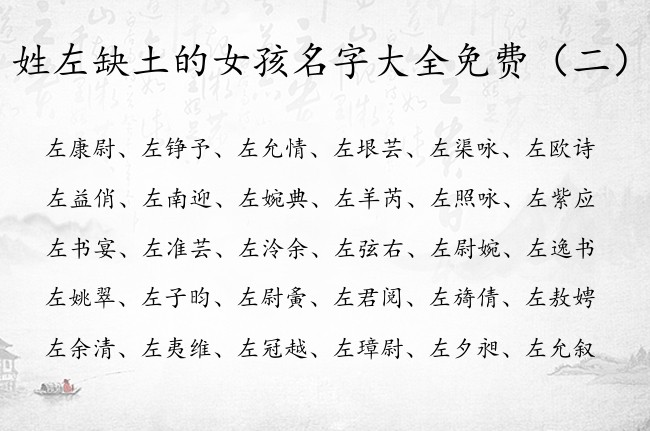 姓左缺土的女孩名字大全免费（二）
左康尉、左铮予、左允情、左垠芸、左渠咏、左欧诗
左益俏、左南迎、左婉典、左羊芮、左照咏、左紫应
左书宴、左准芸、左泠余、左弦右、左尉婉、左逸书
左姚翠、左子昀、左尉夤、左君阅、左旖倩、左敖娉
左余清、左夷维、左冠越、左璋尉、左夕昶、左允叙